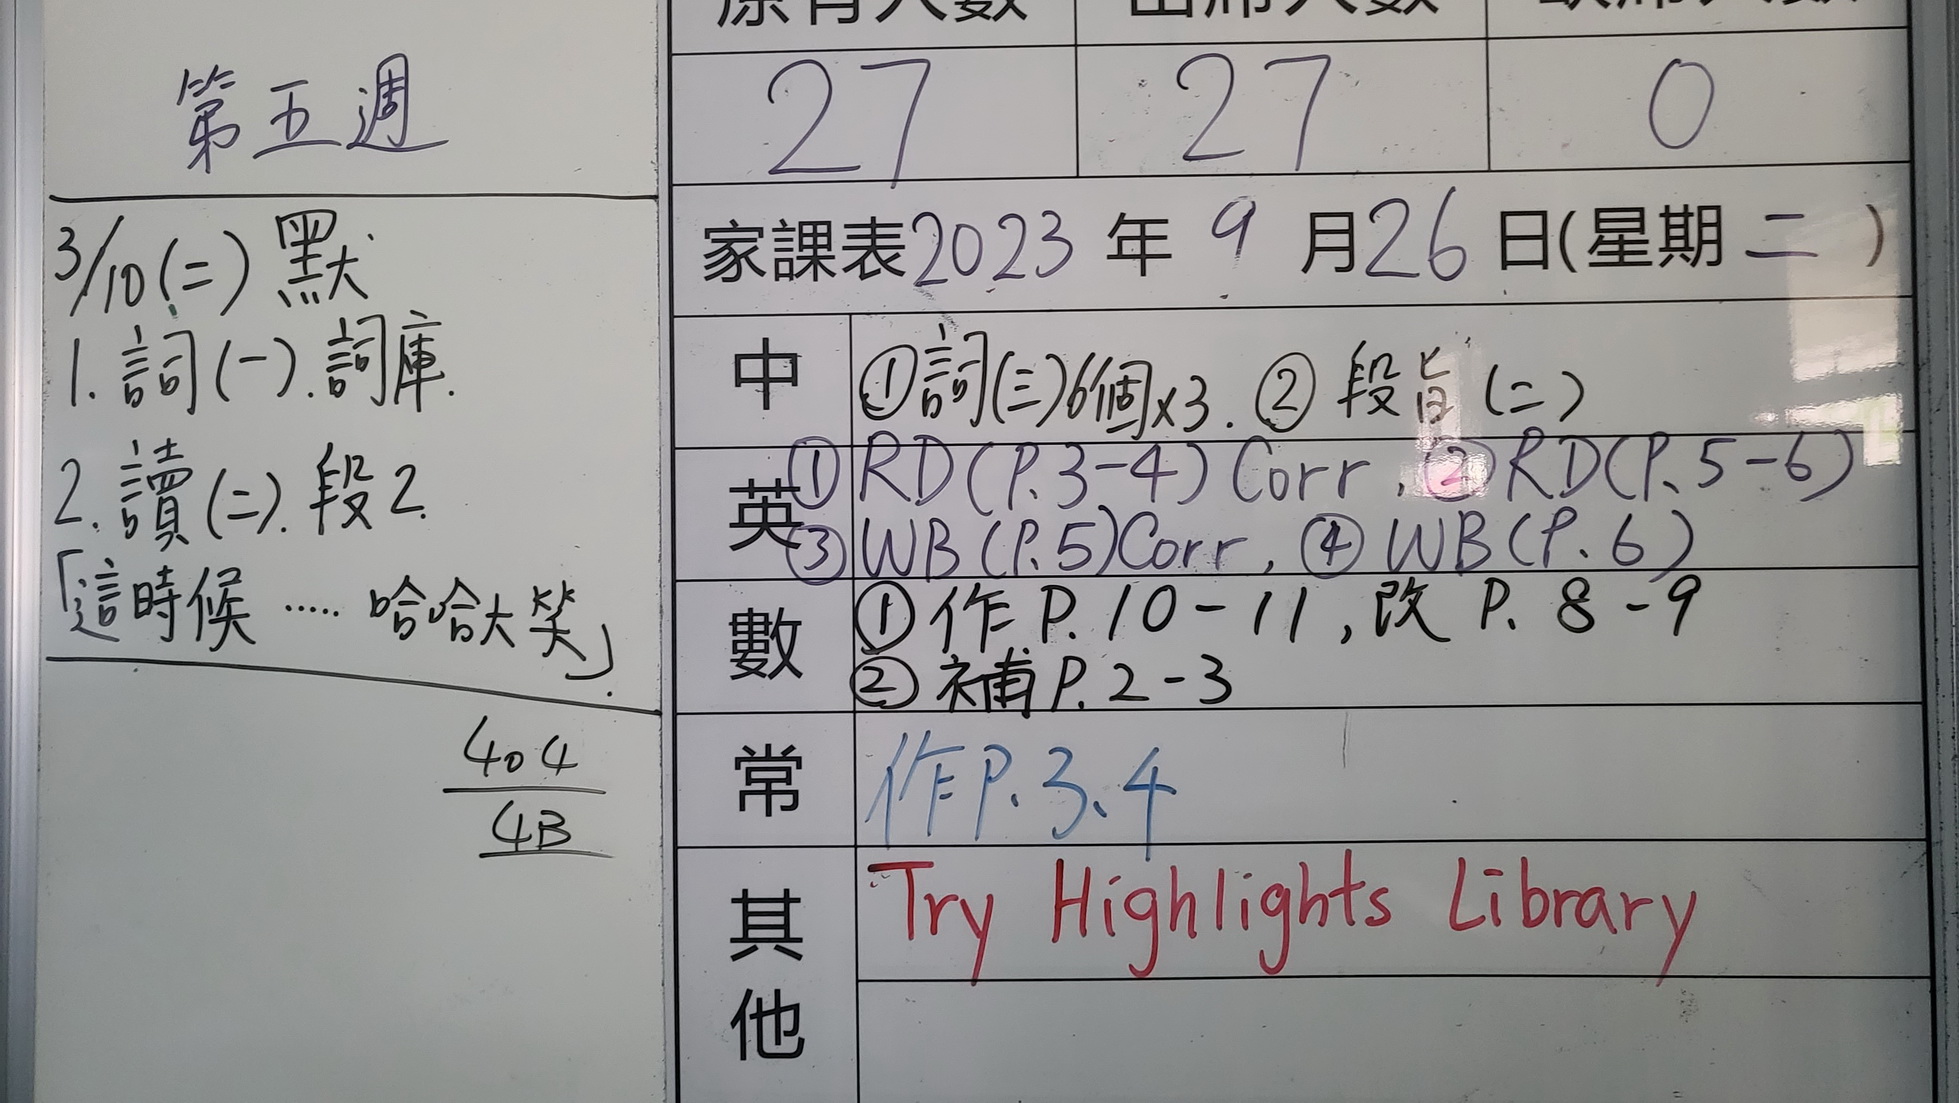 第五週
3/10(二) 默
1. 詞(一). 詞庫.
2. 讀(二). 段2.
「這時候 ..... 哈哈大笑」.
404
4B
原有人數 出席人數 缺席人數
27 27 0
家課表 2023 年 9 月 26 日(星期 二 )
中 ①詞(三)6個x3. ② 段旨 (二)
英 ① RD(P.3-4) Corr, ② RD(P.5-6)
③ WB(P.5)Corr, ④ WB(P.6)
數 ① 作 P.10-11, 改 P.8-9
② 補 P.2-3
常 作P.3、4
其他 Try Highlights Library